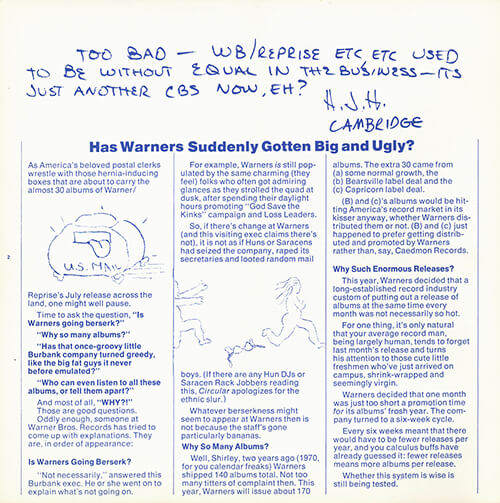 TOO BAD — WB/REPRISE ETC, ETC USED
TO BE WITHOUT EQUAL IN THE BUSINESS — ITS
JUST ANOTHER CBS NOW, EH?
H.J.H.
CAMBRIDGE
Has Warners Suddenly Gotten Big and Ugly?
As America's beloved postal clerks
wrestle with those hernia-inducing
boxes that are about to carry the
almost 30 albums of Warner/
U.S. MAIL
Reprise's July release across the
land, one might well pause.
Time to ask the question, "Is
Warners going berserk?"
"Why so many albums?"
"Has that once-groovy little
Burbank company turned greedy,
like the big fats guys it never
before emulated?"
"Who can even listen to all these
albums, or tell them apart?"
And most of all, "WHY?!"
Those are good questions.
Oddly enough, someone at
Warner Bros. Records has tried to
come up with explanations. They
are, in order of appearance:
Is Warners Going Berserk?
"Not necessarily," answered this
Burbank exec. He or she went on to
explain what's not going on.
For example, Warners is still pop-
ulated by the same charming (they
feel) folks who often got admiring
glances as they strolled the quad at
dusk, after spending their daylight
hours promoting "God Save the
Kinks" campaign and Loss Leaders.
So, if there's change at Warners
(and this visiting exec claims there's
not), it is not as if Huns or Saracens
had seized the company, raped its
secretaries and looted random mail
boys. (If there are any Hun DJs or
Saracen Rack Jobbers reading
this, Circular apologizes for the
ethnic slur.)
Whatever berserkness might
seem to appear at Warners then is
not because the staff's gone
particularly bananas.
Why So Many Albums?
Well, Shirley, two years ago (1970,
for you calendar freaks) Warners
shipped 140 albums total. Not too
many titters of complaint then. This
year, Warners will issue about 170
albums. The extra 30 came from
(a) some normal growth, the
(b) Bearsville label deal and the
(c) Capricorn label deal.
(B) and (c)'s albums would be hit-
ting America's record market in its
kisser anyway, whether Warners dis-
tributed them or not. (B) and (c) just
happened to prefer getting distrib-
uted and promoted by Warners
rather than, say, Caedmon Records.
Why Such Enormous Releases?
This year, Warners decided that a
long-established record industry
custom of putting out a release of
albums at the same time every
month was not necessarily so hot.
For one thing, it's only natural
that your average record man,
being largely human, tends to forget
last month's release and turns
his attention to those cute little
freshmen who've just arrived on
campus, shrink-wrapped and
seemingly virgin.
Warners decided that one month
was just too short a promotion time
for its albums' fresh year. The com-
pany turned to a six-week cycle.
Every six weeks meant that there
would have to be fewer releases per
year, and you calculus buffs have
already guessed it: fewer releases
means more albums per release.
Whether this system is wise is
still being tested.